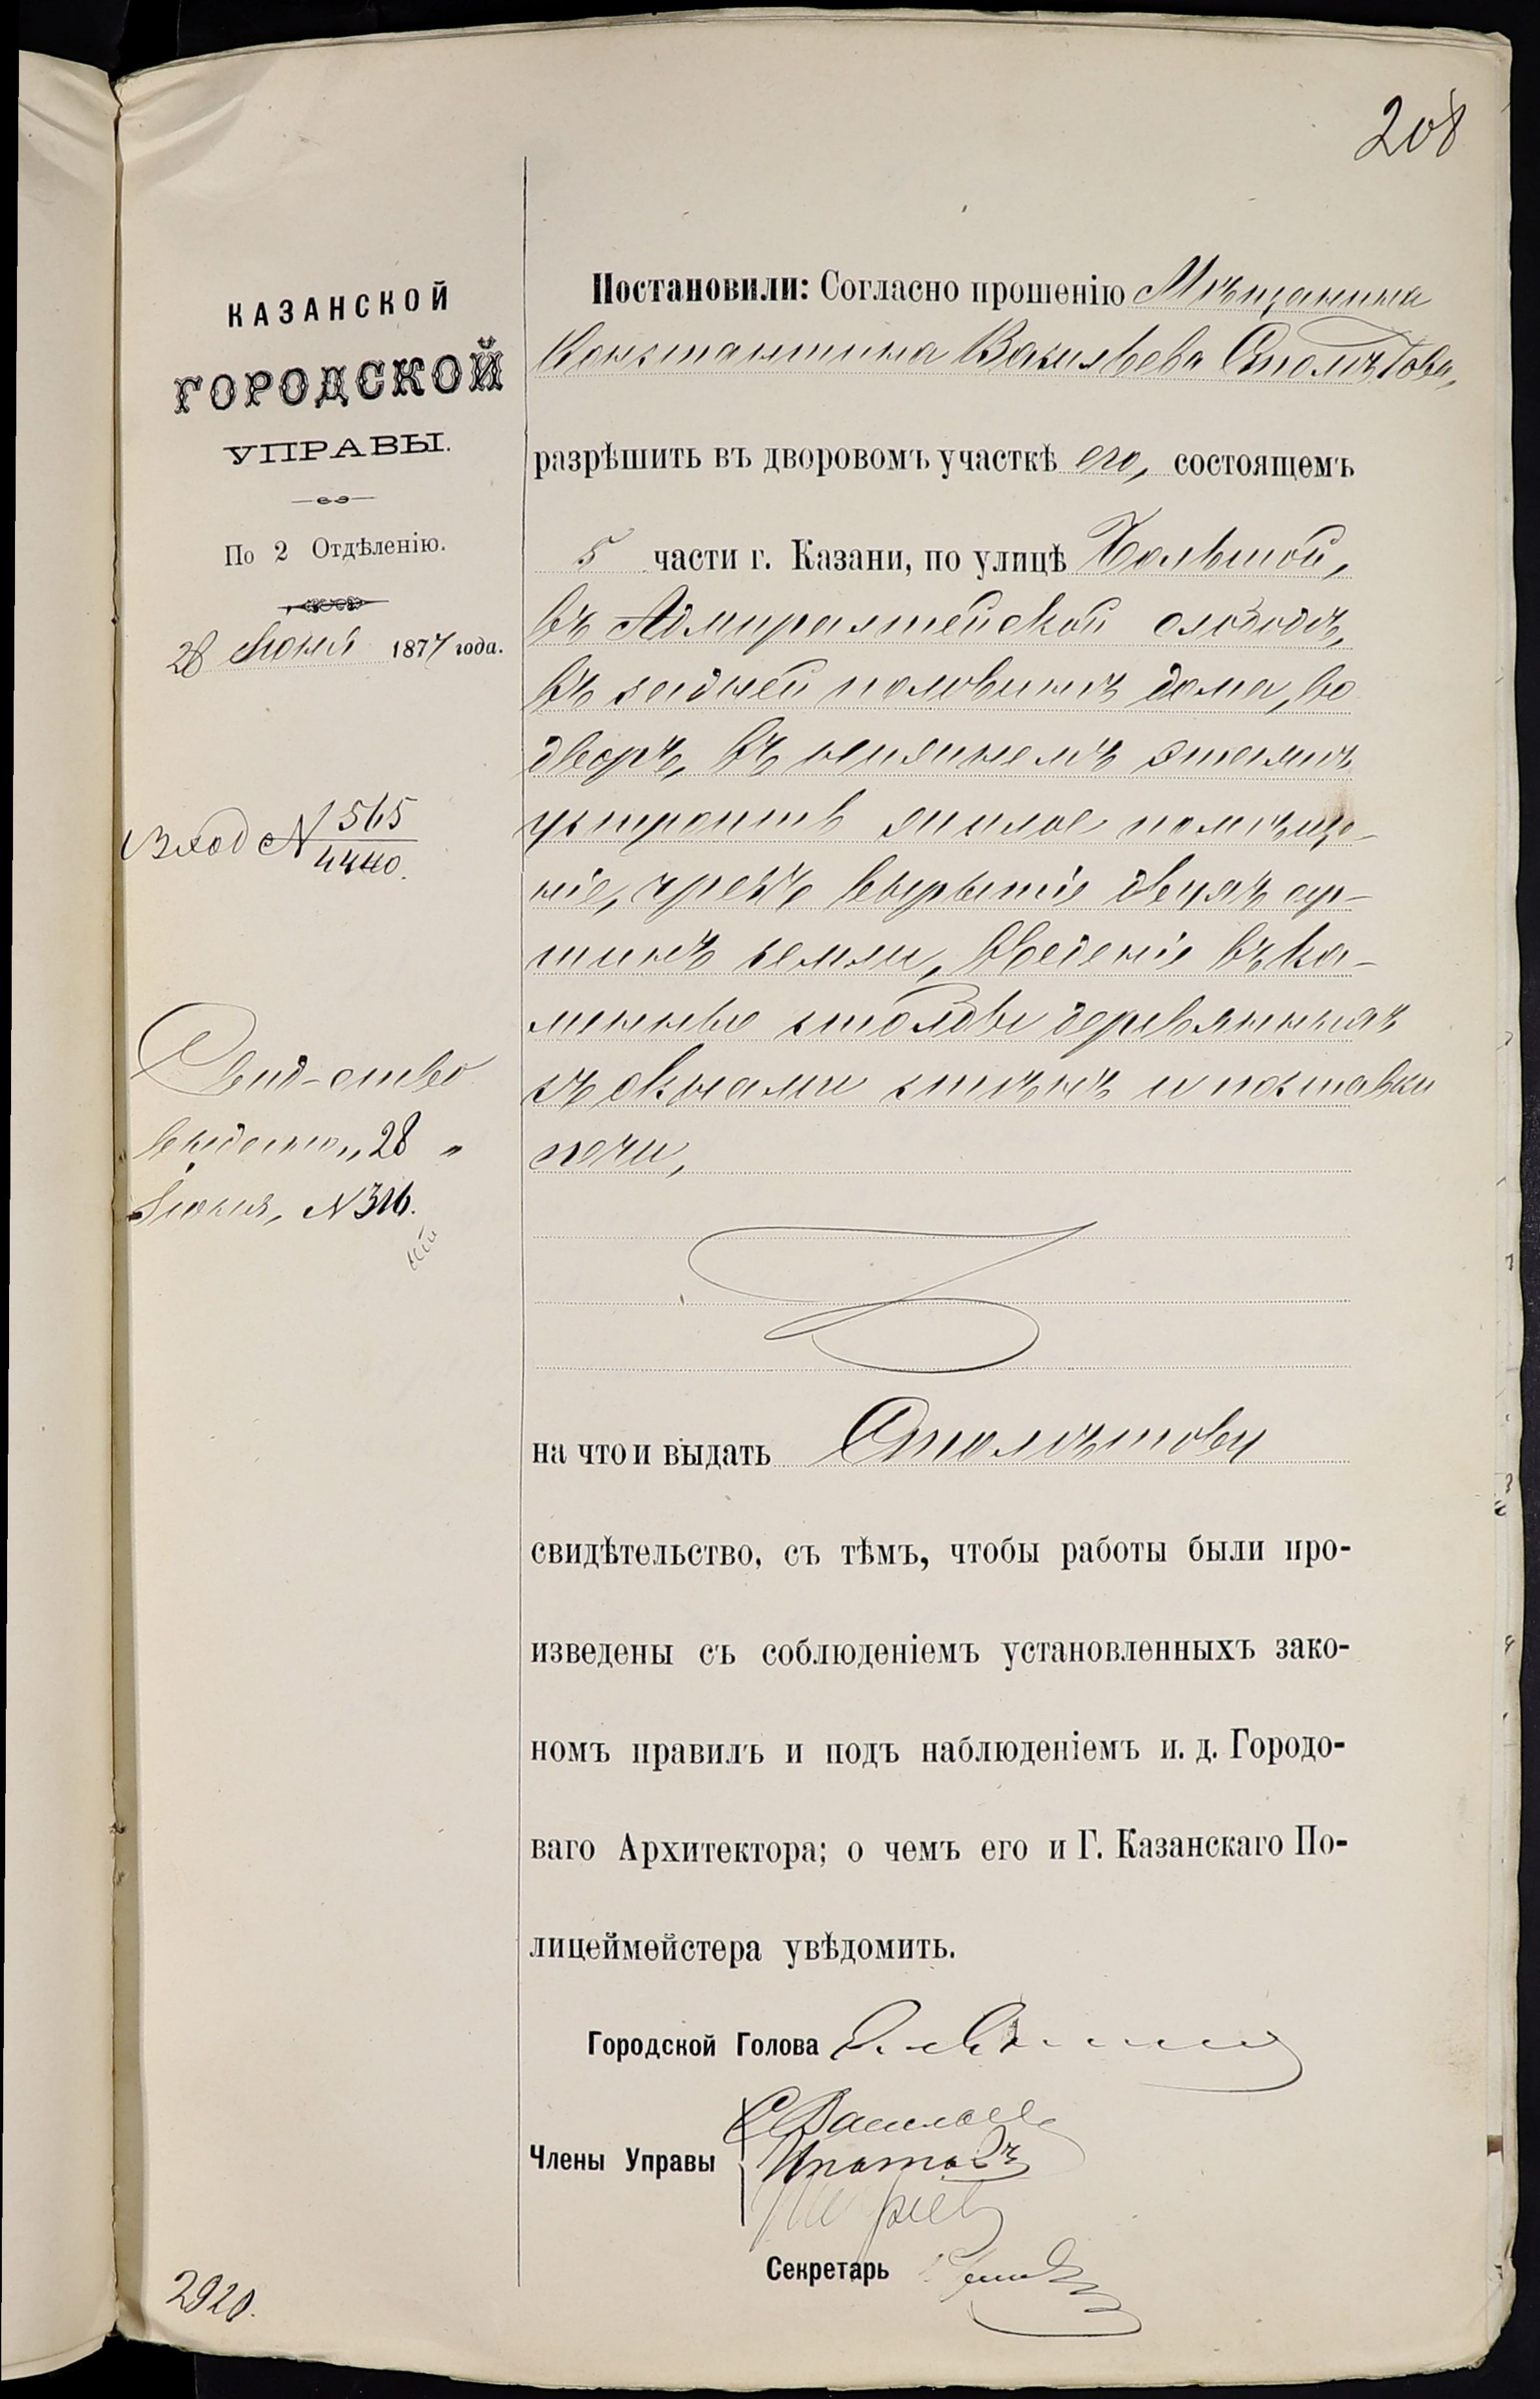 208
КАЗАНСКОЙ
ГОРОДСКОЙ
УПРАВЫ.
По 2 Отдѣленію.
28 Іюня 1877 года.
Вход № 565
4440.
Свид-ство
выдано „28„
Іюня, № 316.
Постановили: Согласно прошенію Мѣщанина
Константина Васильева Столѣтова,
разрѣшить въ дворовомъ участкѣ его, состоящемъ
5 части г. Казани, по улицѣ Большой,
въ Адмиралтейской слободѣ,
въ задней половинѣ дома, во
дворѣ, въ нижнемъ этажѣ
устроить жилое помѣще-
ніе, чрезъ вырытіе двухъ ар-
шинъ земли, введеніе въ ка-
менные столбы деревянныхъ
съ окнами стѣнъ и поставки
печи,
на что и выдать Столѣтову
свидѣтельство, съ тѣмъ, чтобы работы были про-
изведены съ соблюденіемъ установленныхъ зако-
номъ правилъ и подъ наблюденіемъ и. д. Городо-
ваго Архитектора; о чемъ его и Г. Казанскаго По-
лицеймейстера увѣдомить.
Городской Голова
Члены Управы
С Васильевъ
Ипатовъ
Секретарь
2920.